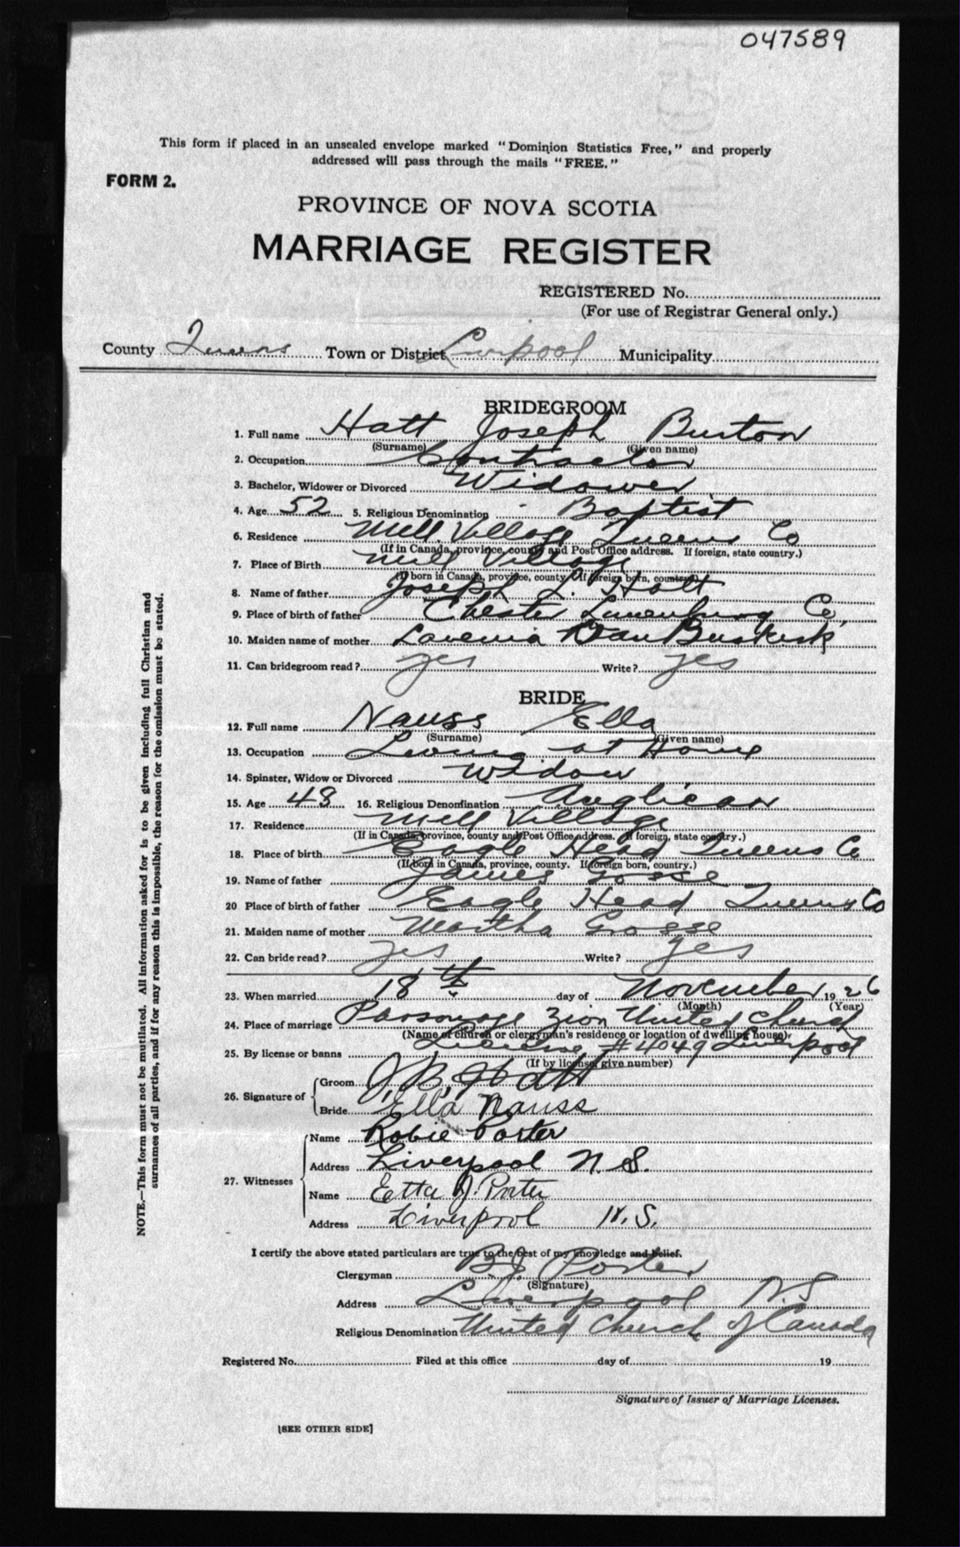 047589
This form if placed in an unsealed envelope marked "Dominion Statistics Free," and properly
addressed will pass through the mails "FREE."
FORM 2.
PROVINCE OF NOVA SCOTIA
MARRIAGE REGISTER
REGISTERED No.
(For use of Registrar General only.)
County Queens Town or District Liverpool Municipality
BRIDEGROOM
1. Full name Hatt Joseph Burton
(Surname) (Given name)
2. Occupation Contractor
3. Bachelor, Widower or Divorced Widower
4. Age 52 5. Religious Denomination Baptist
6. Residence Mill Village Queens Co
(If in Canada, province, county and Post Office address. If foreign, state country.)
7. Place of Birth Mill Village
(If born in Canada, province, county. If foreign born, country.)
8. Name of father Joseph J. Hatt
9. Place of birth of father Chester Lunenburg Co.
10. Maiden name of mother Lavenia Van Buskirk
11. Can bridegroom read? yes Write? yes
BRIDE
12. Full name Nauss Ella
(Surname) (Given name)
13. Occupation Living at Home
14. Spinster, Widow or Divorced Widow
15. Age 48 16. Religious Denomination Anglican
17. Residence Mill Village
(If in Canada, province, county and Post Office address. If foreign, state country.)
18. Place of birth Eagle Head Queens Co
(If born in Canada, province, county. If foreign born, country.)
19. Name of father James Gosse
20 Place of birth of father Eagle Head Queens Co
21. Maiden name of mother Martha Grosse
22. Can bride read? yes Write? yes
23. When married 18th day of November 1926
(Month) (Year)
24. Place of marriage Parsonage Zion United Church
(Name of church or clergyman's residence or location of dwelling house)
25. By license or banns License #4049 Liverpool
(If by license give number)
26. Signature of Groom J. B. Hatt
Bride Ella Nauss
27. Witnesses Name Robie Porter
Address Liverpool N. S.
Name Etta J. Porter
Address Liverpool N. S.
I certify the above stated particulars are true to the best of my knowledge and belief.
Clergyman B. J. Porter
(Signature)
Address Liverpool N. S
Religious Denomination United Church of Canada
Registered No. Filed at this office day of 19
Signature of Issuer of Marriage Licenses.
[SEE OTHER SIDE]
NOTE.—This form must not be mutilated. All information asked for is to be given including full Christian and
surnames of all parties, and if for any reason this is impossible, the reason for the omission must be stated.